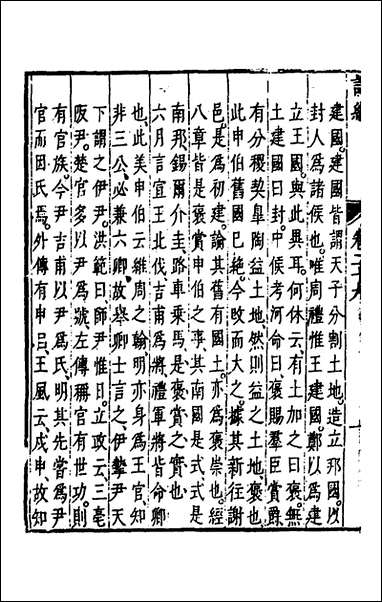 建國建國皆謂天子分割土地造立邦國以
封人為諸侯也唯周禮惟王建國鄭以為建
立王國與此異耳何休云有土加之曰褒無
土建國曰封中候考河命曰褒賜羣臣賞爵
有分稷契臯陶益土地然則益之土地褒也
此申伯舊國已絶今改而大之據其新往謝
邑是為初建論其舊有國土亦為褒崇也經
八章皆是褒賞申伯之事其南國是式式是
南邦錫爾介圭路車乘馬是褒賞之實也
六月言宣王北伐吉甫為將禮軍將皆命卿
也此美申伯云維周之翰明亦身為王官知
非三公必兼六卿故舉卿士言之伊摯尹天
下謂之伊尹洪範曰師尹惟日立政云三亳
阪尹楚官多以尹為號左傳稱官有世功則
有官族今尹吉甫以尹為氏明其先嘗為尹
官而因氏焉外傳有申呂王風云戍申故知